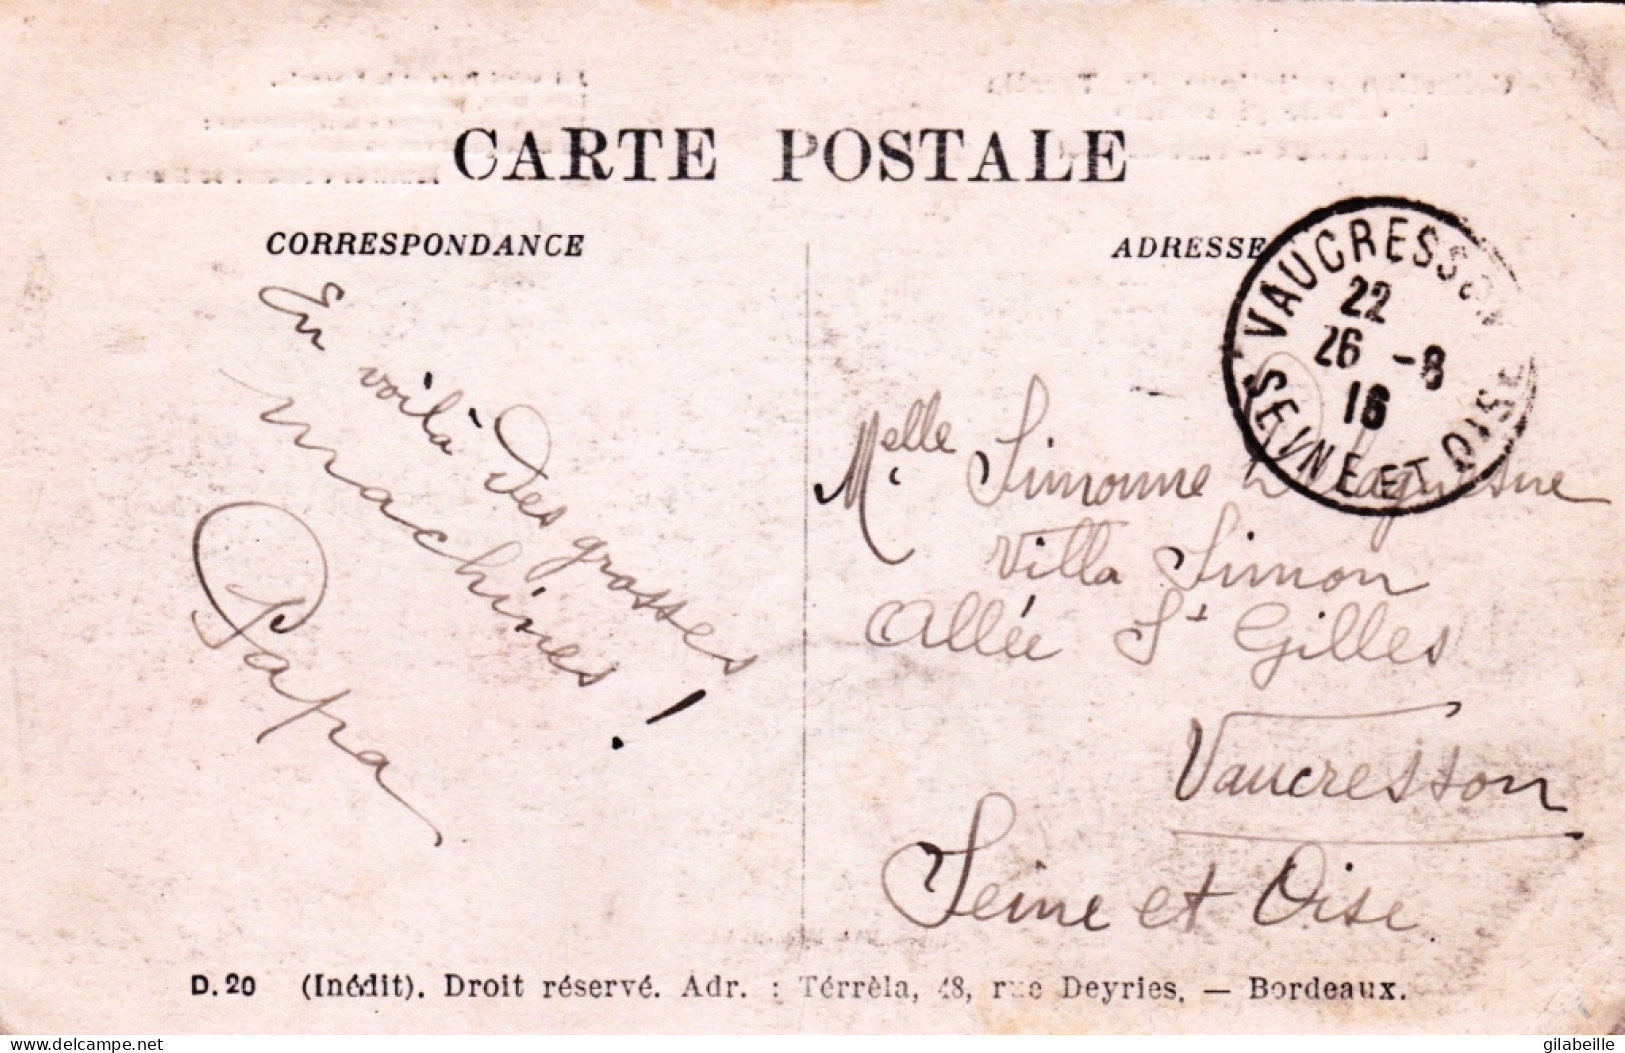 CARTE POSTALE
CORRESPONDANCE
ADRESSE
VAUCRESSON
22
26 -8
16
SEINE ET OISE
En voilà des grosses
machines !
Papa
Melle Simonne
Villa Simon
Allée St Gilles
Vaucresson
Seine et Oise
D. 20 (Inédit). Droit réservé. Adr. : Térrèla, 48, rue Deyries. — Bordeaux.
delcampe.net
gilabeille